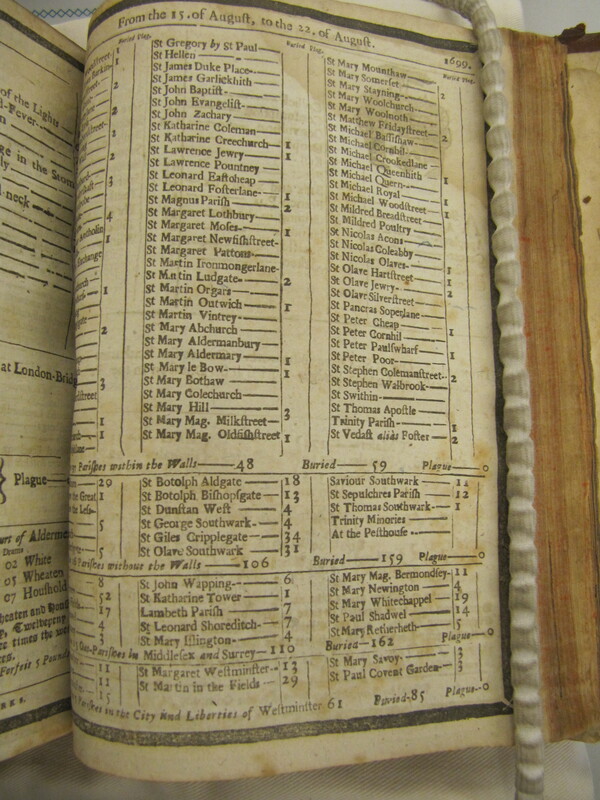 From the 15. of Auguſt, to the 22. of Auguſt. 1699.
Buried Plag.
St Gregory by St Paul
St Hellen
St James Duke Place
St James Garlickhith
St John Baptiſt
St John Evangeliſt
St John Zachary
St Katharine Coleman
St Katharine Creechurch 1
St Lawrence Jewry 1
St Lawrence Pountney
St Leonard Eaſtcheap
St Leonard Foſterlane
St Magnus Pariſh 1
St Margaret Lothbury 2
St Margaret Moſes
St Margaret Newfiſhſtreet 1
St Margaret Pattons
St Martin Ironmongerlane
St Martin Ludgate 2
St Martin Orgars
St Martin Outwich 1
St Martin Vintrey
St Mary Abchurch
St Mary Aldermanbury
St Mary Aldermary
St Mary le Bow 1
St Mary Bothaw 1
St Mary Colechurch
St Mary Hill
St Mary Mag. Milkſtreet 3
St Mary Mag. Oldfiſhſtreet 1
Buried Plag.
St Mary Mounthaw
St Mary Somerſet 2
St Mary Stayning
St Mary Woolchurch
St Mary Woolnoth
St Matthew Fridayſtreet 2
St Michael Baſſiſhaw
St Michael Cornhil
St Michael Crookedlane
St Michael Queenhith 1
St Michael Quern
St Michael Royal 1
St Michael Woodſtreet 1
St Mildred Breadſtreet
St Mildred Poultry
St Nicolas Acons
St Nicolas Coleabby
St Nicolas Olaves
St Olave Hartſtreet 1
St Olave Jewry 1
St Olave Silverſtreet 2
St Pancras Soperlane
St Peter Cheap
St Peter Cornhil 1
St Peter Paulſwharf
St Peter Poor 1
St Stephen Colemanſtreet 2
St Stephen Walbrook
St Swithin
St Thomas Apoſtle
Trinity Pariſh 1
St Vedaſt alias Foſter 2
Pariſhes within the Walls 48 Buried 59 Plague 0
29
St Botolph Aldgate 18
St Botolph Biſhopſgate 13
St Dunſtan Weſt 4
St George Southwark 4
St Giles Cripplegate 34
St Olave Southwark 31
Saviour Southwark 11
St Sepulchres Pariſh 12
St Thomas Southwark 1
Trinity Minories
At the Peſthouſe
Pariſhes without the Walls 106 Buried 159 Plague 0
8
52
17
4
3
St John Wapping 6
St Katharine Tower 1
Lambeth Pariſh 7
St Leonard Shoreditch 7
St Mary Iſlington 4
St Mary Mag. Bermondſey 11
St Mary Newington 4
St Mary Whitechappel 19
St Paul Shadwel 14
St Mary Retherheth 5
Out-Pariſhes in Middleſex and Surrey 110 Buried 162 Plague 0
11
11
15
St Margaret Weſtminſter 13
St Martin in the Fields 29
St Mary Savoy 3
St Paul Covent Garden 3
Pariſhes in the City and Liberties of Weſtminſter 61 Buried 85 Plague 0
of the Lights
neck
at London-Bridge
Plague
02 White
05 Wheaten
07 Houſhold